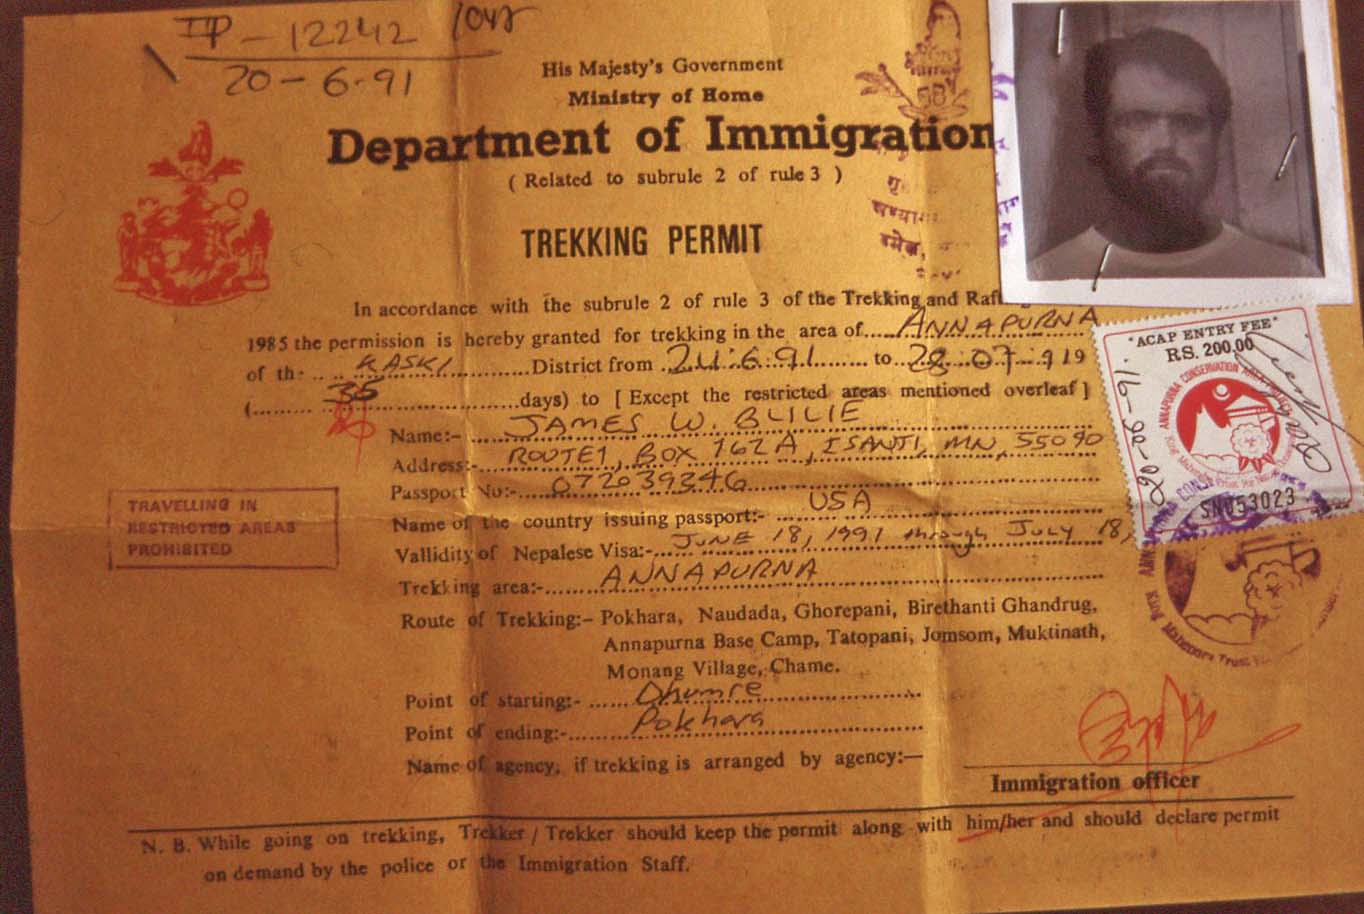 IP - 12242
20-6-91
His Majesty's Government
Ministry of Home
Department of Immigration
( Related to subrule 2 of rule 3 )
TREKKING PERMIT
In accordance with the subrule 2 of rule 3 of the Trekking and Raft
1985 the permission is hereby granted for trekking in the area of ANNAPURNA
of the KASKI District from 24.6.91 to 28.07.919
( 35 days) to [ Except the restricted areas mentioned overleaf ]
Name:- JAMES W. BLILIE
Address:- ROUTE 1, BOX 762A, ISANTI, MN, 55040
Passport No:- 072039346
Name of the country issuing passport:- USA
Vallidity of Nepalese Visa:- JUNE 18, 1991 through JULY 18,
Trekking area:- ANNAPURNA
Route of Trekking:- Pokhara, Naudada, Ghorepani, Birethanti Ghandrug,
Annapurna Base Camp, Tatopani, Jomsom, Muktinath,
Monang Village, Chame.
Point of starting:- Dhumre
Point of ending:- Pokhara
Name of agency, if trekking is arranged by agency:—
Immigration officer
N. B. While going on trekking, Trekker / Trekker should keep the permit along with him/her and should declare permit
on demand by the police or the Immigration Staff.
TRAVELLING IN
RESTRICTED AREAS
PROHIBITED
"ACAP ENTRY FEE"
RS. 200.00
ANNAPURNA CONSERVATION
20-06-91
SN053023
King Mahendra Trust